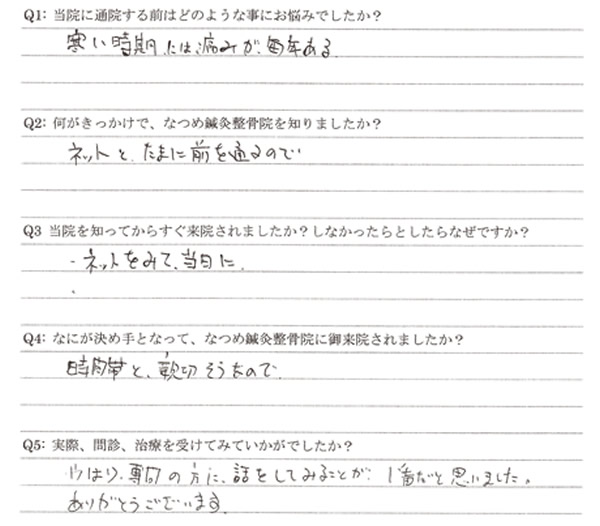 Q1: 当院に通院する前はどのような事にお悩みでしたか？
寒い時期には痛みが、毎年ある
Q2: 何がきっかけで、なつめ鍼灸整骨院を知りましたか？
ネットと、たまに前を通るので
Q3 当院を知ってからすぐ来院されましたか？しなかったらとしたらなぜですか？
・ネットをみて、当日に、
Q4: なにが決め手となって、なつめ鍼灸整骨院に御来院されましたか？
時間帯と、親切そうなので、
Q5: 実際、問診、治療を受けてみていかがでしたか？
やはり、専門の方に、話をしてみることが、1番だと思いました。
ありがとうございます。